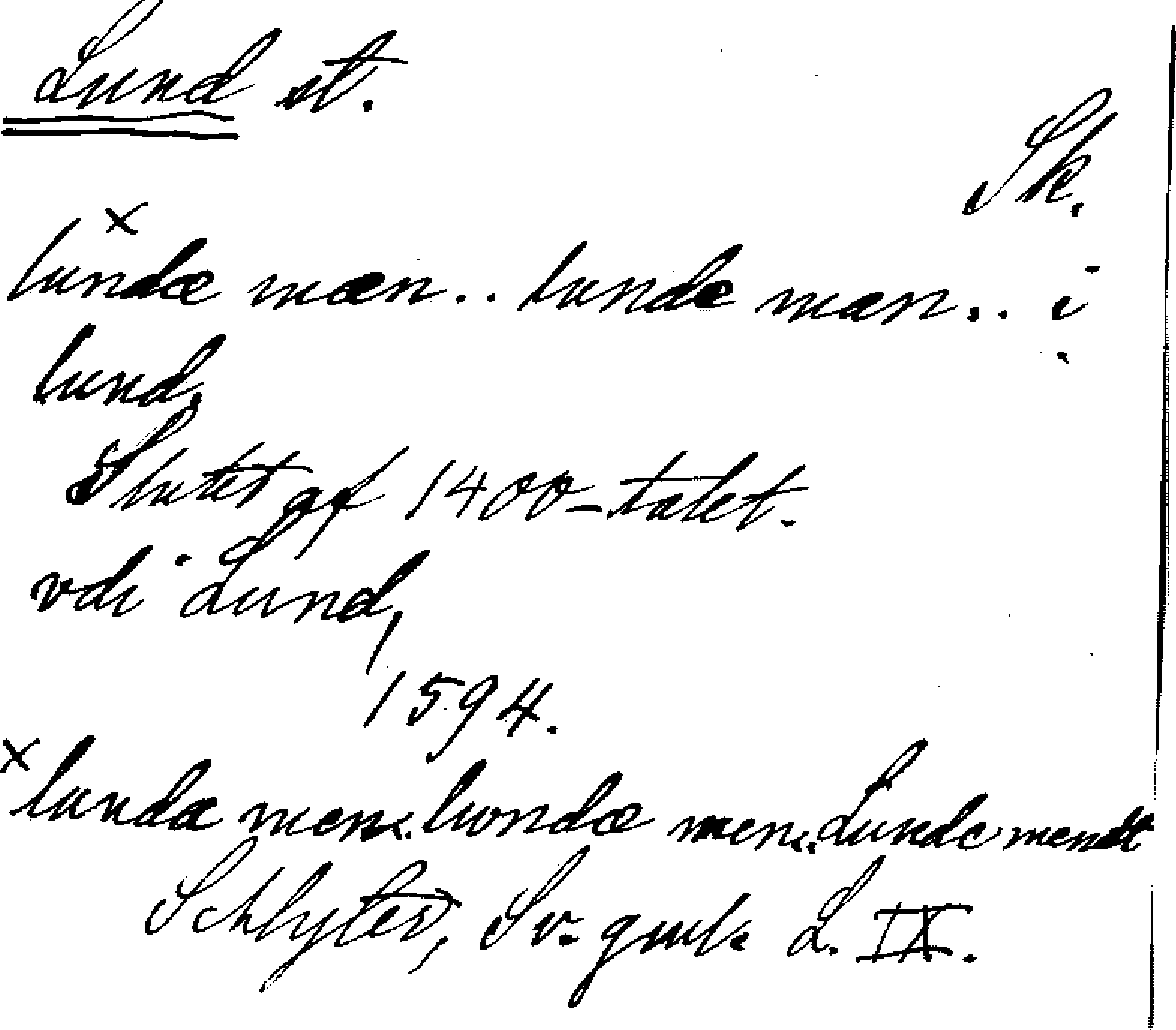 Lund st.
Sk.
x
lundæ mæn.. lunde mæn.. i
lund,
Slutet af 1400-talet.
vdi Lund,
1594.
x lundæ men.. lwndæ men.. Lunde mendt
Schlyter, Sv. gml. L. IX.